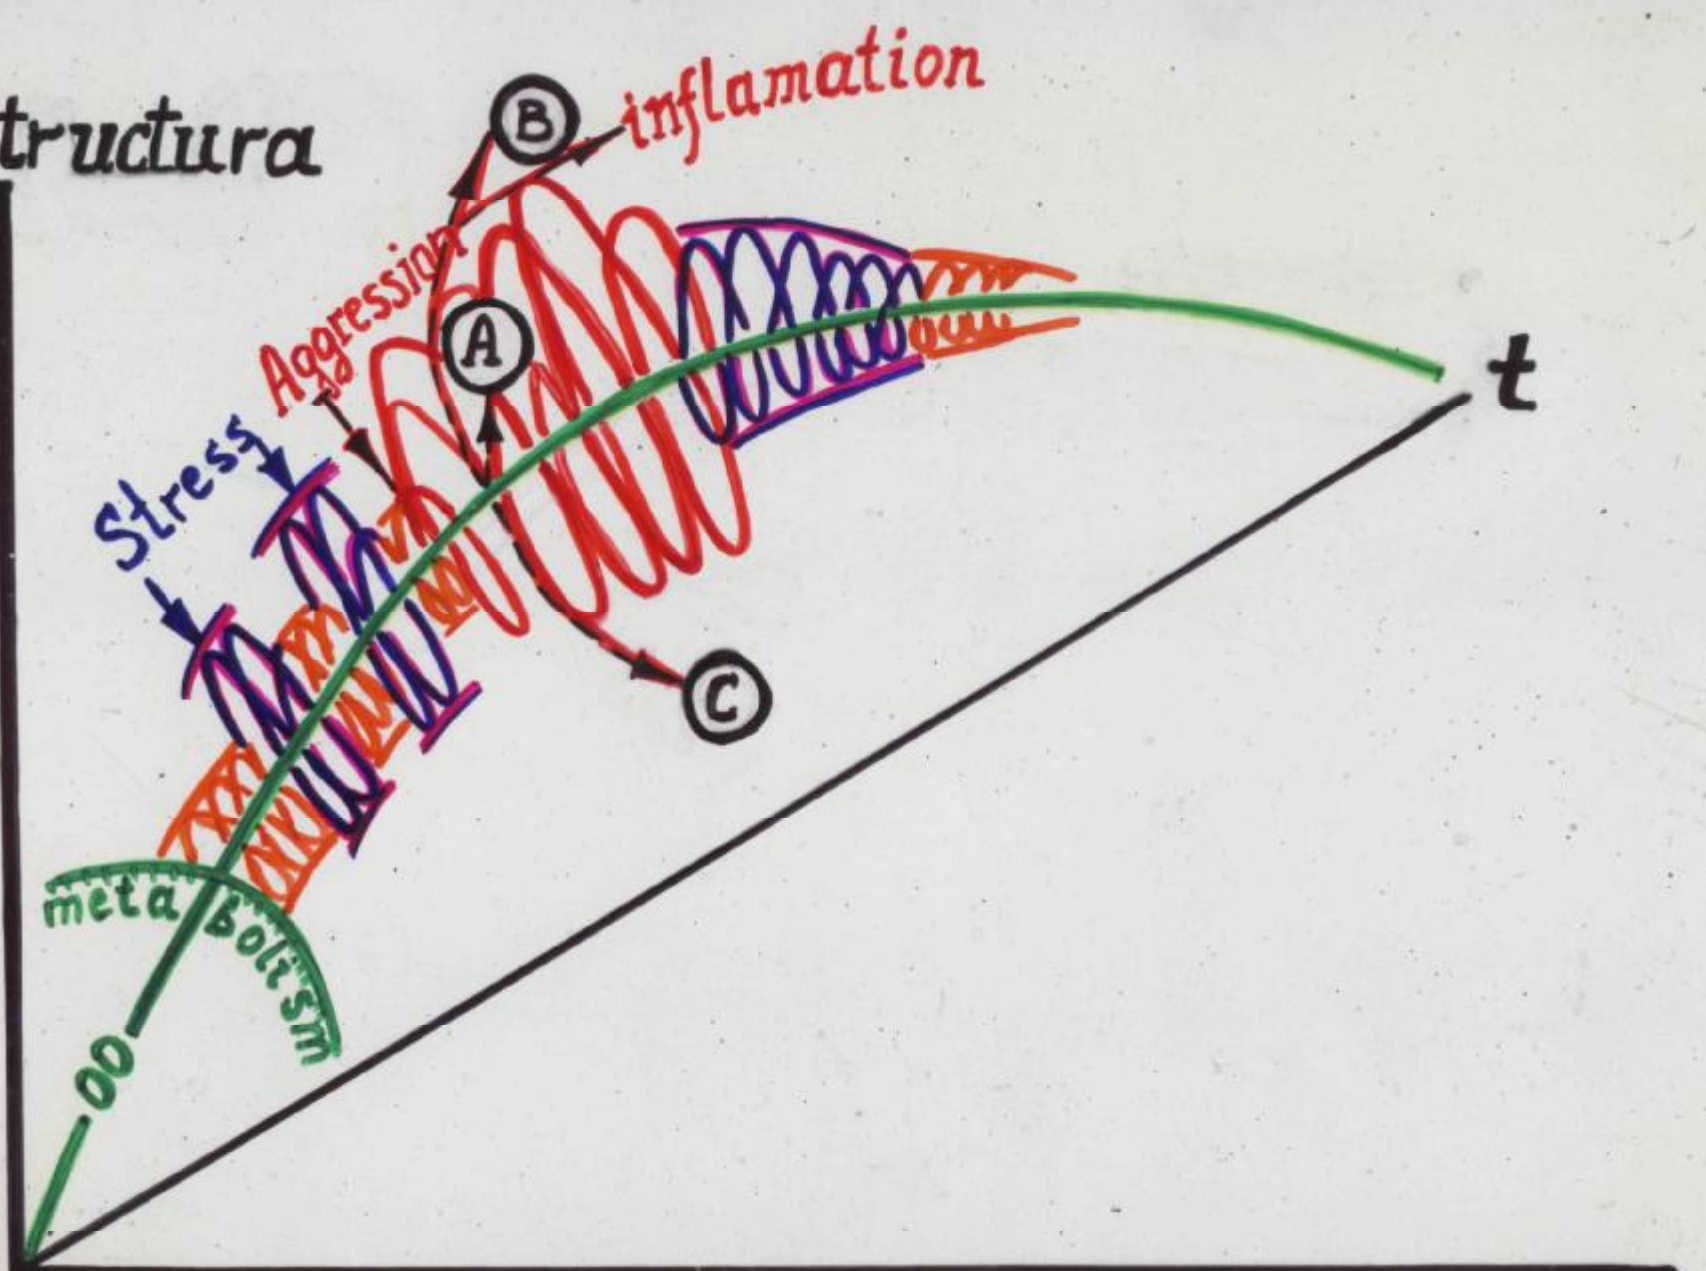 tructura
B
inflamation
Aggression
A
t
Stress
C
metabolism
00